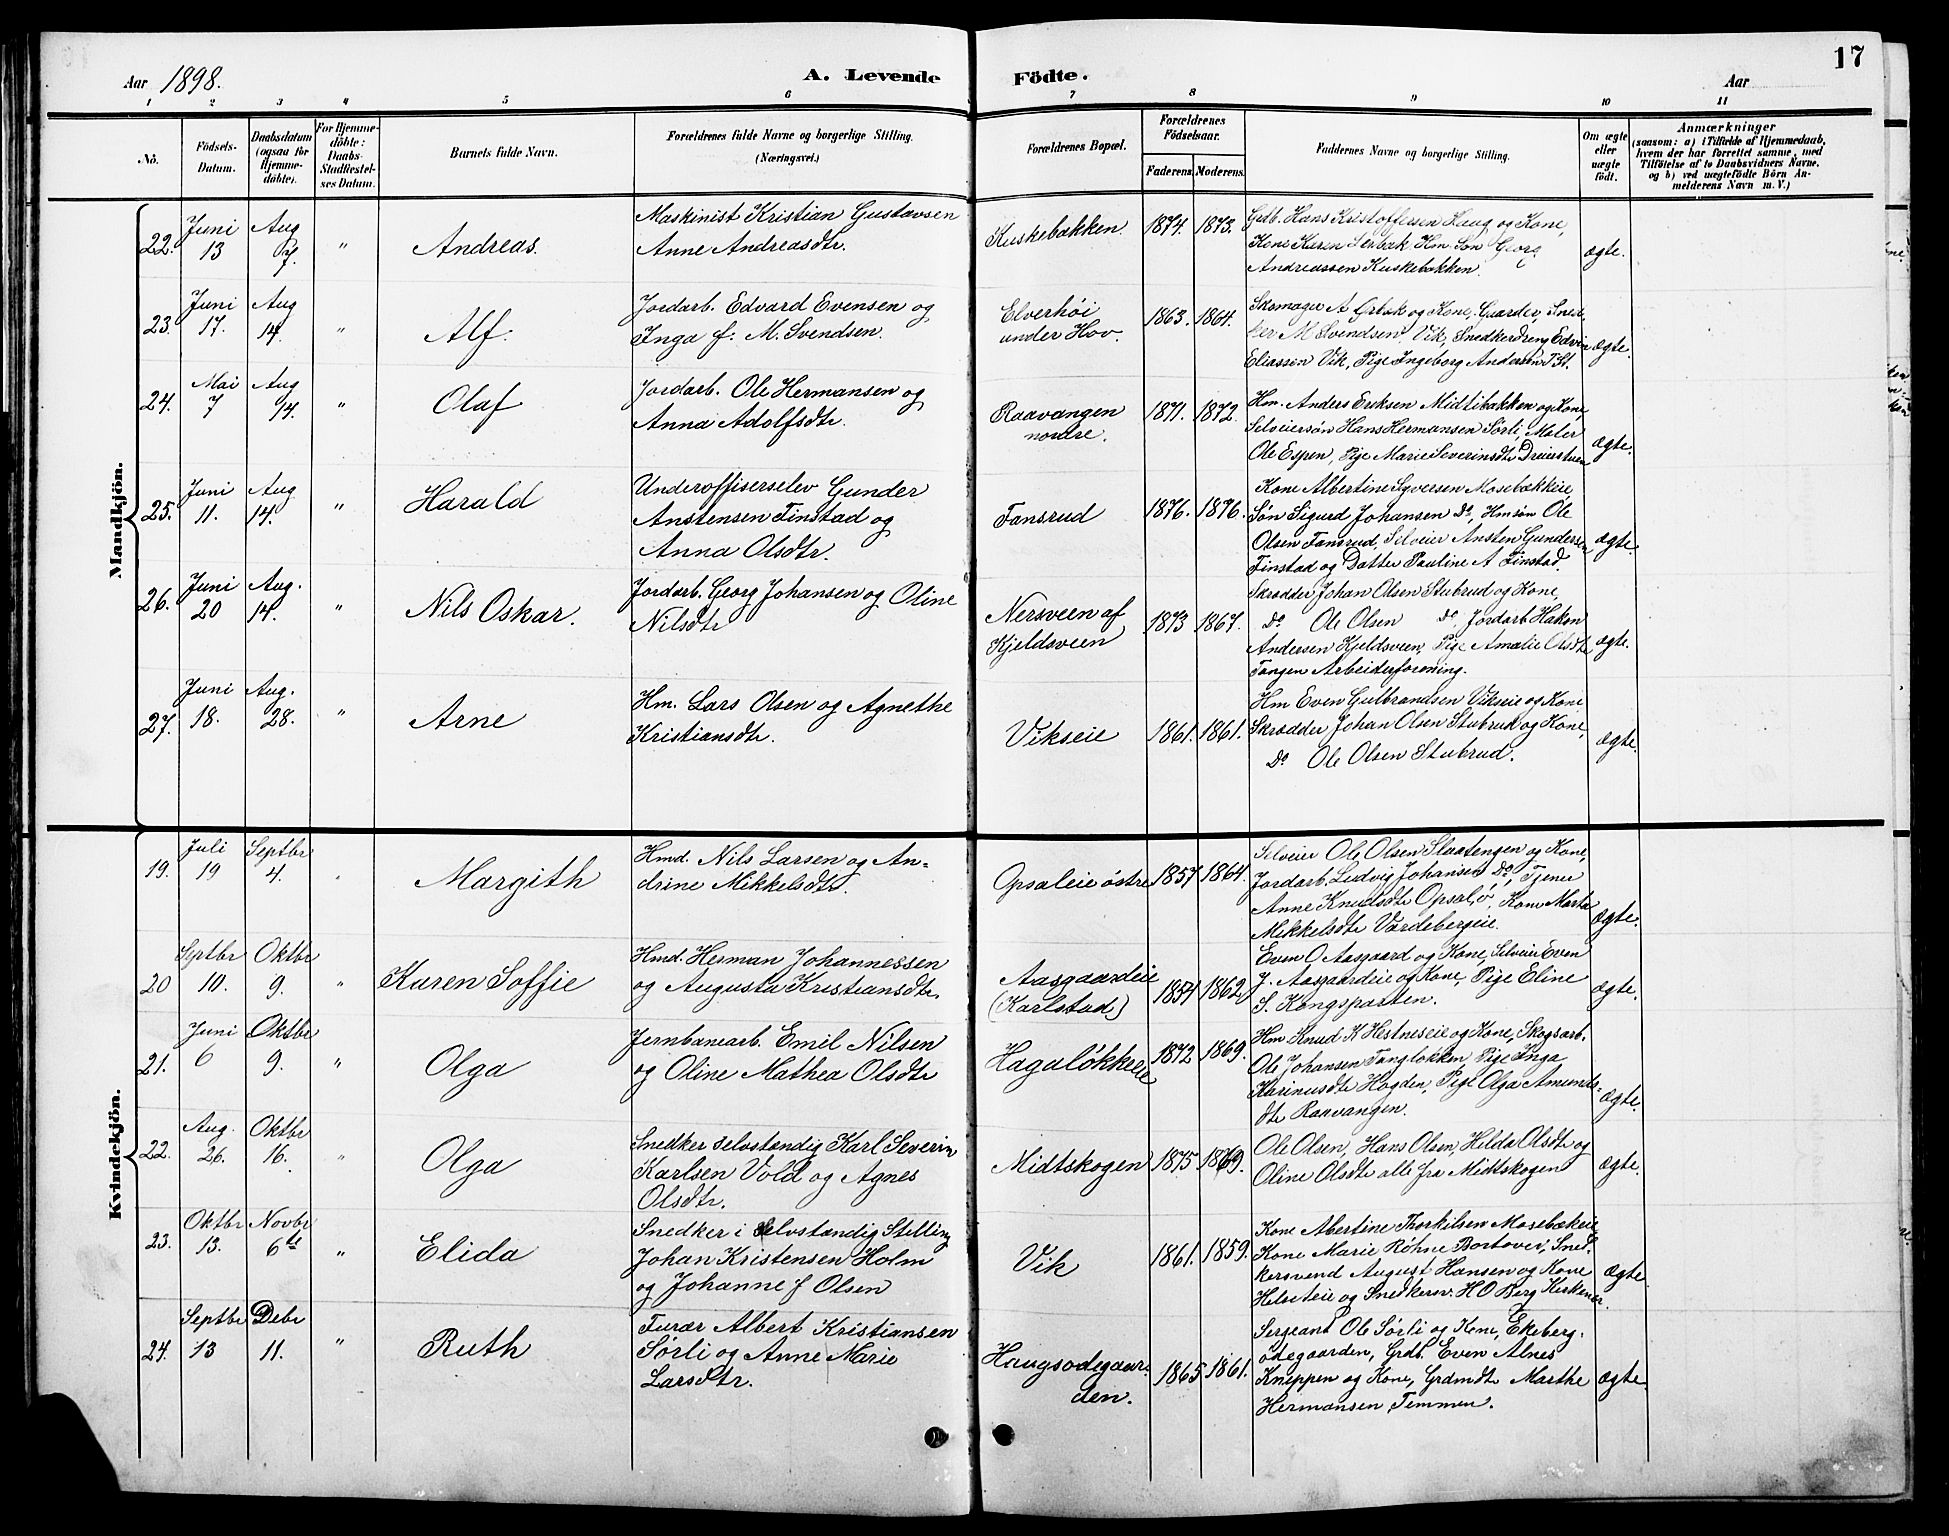 17
Aar 1898.
A. Levende Födte.
Aar
1 2 3 4 5 6 7 8 9 10 11
No.
Födsels-
Datum.
Daabsdatum
(ogsaa for
Hjemme-
döbte).
For Hjemme-
döbte:
Daabs-
Stadfæstel-
ses Datum.
Barnets fulde Navn.
Forældrenes fulde Navne og borgerlige Stilling.
(Næringsvei.)
Forældrenes Bopæl.
Forældrenes
Födselsaar.
Faderens. Moderens.
Faddernes Navne og borgerlige Stilling.
Om ægte
eller
uægte
födt.
Anmærkninger
(saasom: a) i Tilfælde af Hjemmedaab,
hvem der har forrettet samme, med
Tilföielse af to Daabsvidners Navne.
og b) ved uægtefödte Börn An-
melderens Navn m. V.)
Mandkjön.
22. Juni 13 Aug 7. " Andreas.
Maskinist Kristian Gustavsen
Anne Andreasdtr.
Kuskebakken. 1874. 1873.
Grdb. Hans Kristoffersen Haug og Kone,
Kone Karen Serbak Hm. Søn Georg
Andreassen Kuskebakken.
ægte.
23. Juni 17. Aug 14. " Alf.
Jordarb. Edvard Evensen og
Inga f. M. Svendsen.
Elverhöi
under Hov.
1863. 1864.
Skomager A Ørbak og Kone, Guarder, Sned-
ker M Svendsen, Vik, Snedkerdreng Edvin
Eliassen Vik, Pige Ingeborg Andersen T St.
ægte.
24. Mai 7 Aug 14. " Olaf
Jordarb. Ole Hermansen og
Anna Adolfsdtr.
Raavangen
nordre.
1871. 1872.
Hm. Anders Eriksen Midtibakken og Kone,
Selveiersøn Hans Hermansen Sørli, Maler
Ole Espen, Pige Marie Severinsdtr Dreierstuen
ægte.
25. Juni 11. Aug 14. " Harald
Underoffiserselev Gunder
Anstensen Finstad og
Anna Olsdtr.
Fansrud 1876. 1876.
Kone Albertine Syversen Mosebækkeie,
Søn Sigurd Johansen Do, Hmsøn Ole
Olsen Fansrud, Selveier Ansten Gundersen
Finstad og Datter Pauline A Finstad.
ægte.
26. Juni 20 Aug. 14. " Nils Oskar.
Jordarb. Georg Johansen og Oline
Nilsdtr
Nersveen af
Kjeldsveen
1873 1867.
Skrædder Johan Olsen Stubrud og Kone,
Do Ole Olsen Do, Jordarb Hakon
Andersen Kjeldsveen, Pige Amalie Olsdtr
Tangen Arbeiderforening.
ægte.
27. Juni 18. Aug. 28. " Arne
Hm. Lars Olsen og Agnethe
Kristiansdtr.
Vikseie 1861. 1861.
Hm Even Gulbrandsen Vikseie og Kone
Skrædder Johan Olsen Stubrud og Kone,
Do Ole Olsen Stubrud.
ægte.
Kvindekjön.
19. Juli 19 Septbr 4. " Margith
Hmd. Nils Larsen og An-
drine Mikkelsdtr.
Opsaleie østre 1857 1864.
Selveier Ole Olsen Slaatengen og Kone,
Jordarb. Ludvig Johansen Do, Tjener
Anne Knudsdtr Opsal, ø. Kone Marta
Mikkelsdtr Vardebergeie.
ægte.
20 Septbr 10. Oktbr 9. " Karen Soffie
Hmd. Herman Johannessen
og Augusta Kristiansdtr.
Aasgaardeie
(Karlstad)
1854 1862
Even O Aasgaard og Kone, Selveier Even
J. Aasgaardeie og Kone, Pige Eline
S. Kongsparten.
ægte.
21. Juni 6 Oktbr 9. " Olga
Jernbanearb. Emil Nilsen
og Oline Mathea Olsdtr
Hagaløkkeie 1872 1869.
Hm Knud K Hestneseie og Kone, Skogsarb.
Ole Johansen Tangløkken Pige Inga
Karinusdtr Hagden, Pige Olga Amunds-
dtr Raavangen.
ægte.
22. Aug. 26. Oktbr 16. " Olga
Snedker selvstændig Karl Severin
Karlsen Vold og Agnes
Olsdtr.
Midtskogen 1875 1869.
Ole Olsen, Hans Olsen, Helda Olsdtr og
Oline Olsdtr alle fra Midtskogen
ægte.
23. Oktbr 13. Novbr 6te " Elida
Snedker i Selvstændig Stilling
Johan Kristensen Holm
og Johanne f Olsen
Vik 1861. 1859.
Kone Abertine Thorkilsen Mosebækeie
Kone Marie Røhne Bortover, Sned-
kersvend August Hansen og Kone
Helseteie og Snedkersv. H O Berg Kirkener.
ægte.
24. Septbr 13 Debr 11. " Ruth
Furær Albert Kristiansen
Sørli og Anne Marie
Larsdtr.
Haugsødegaar-
den.
1865 1861.
Sergeant Ole Sørli og Kone, Ekeberg-
ødegaarden, Grdb. Even Alnes
Knippen og Kone, Grdmdtr Marthe
Hermansen Temmen.
ægte.